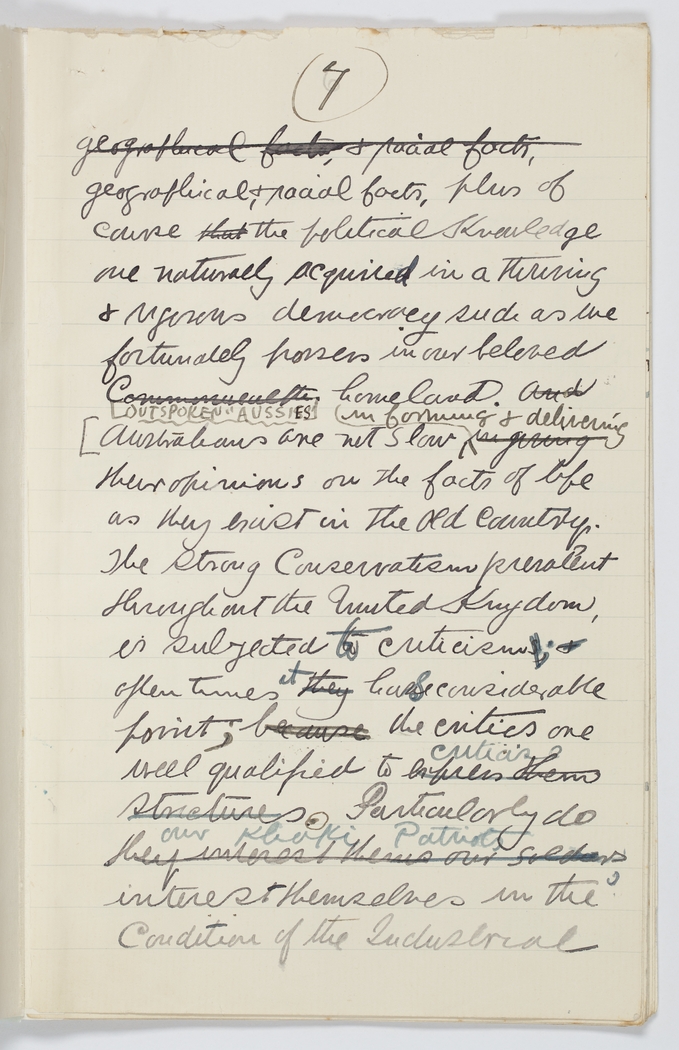 7
geographical facts, & racial facts,
geographical, & racial facts, plus of
course that the political Knowledge
one naturally acquired in a thriving
& vigorous democracy such as we
fortunately possess in our beloved
Commonwealth. homeland. And
OUTSPOKEN "AUSSIES" in forming & delivering
[Australians are not slow, in giving
their opinions on the facts of life
as they exist in the Old Country.
The strong Conservatism prevalent
throughout the United Kingdom,
is subjected to criticism, &
often times it they has considerable
point; because the critics are
criticise
well qualified to express them
strictures. Particularly do
our Khaki Patriots
they interest thems our soldiers
interest themselves in the
Condition of the Industrial